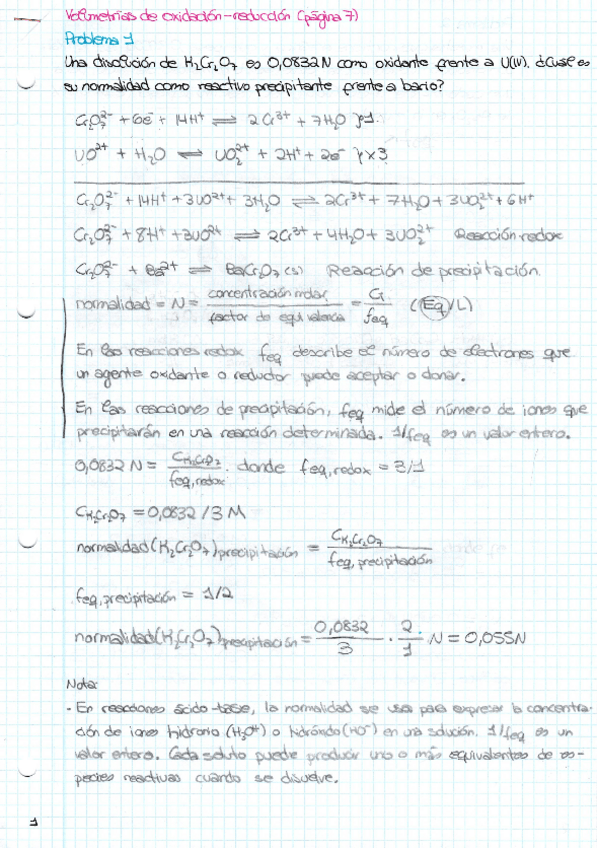 Volumetrías de oxidación-reducción (página 7)
Problema 1
Una disolución de K₂Cr₂O₇ es 0,0832 N como oxidante frente a U(IV). ¿Cuál es
su normalidad como reactivo precipitante frente a bario?
Cr₂O₇²⁻ + 6e⁻ + 14H⁺ ⇌ 2Cr³⁺ + 7H₂O }·1
UO²⁺ + H₂O ⇌ UO₂²⁺ + 2H⁺ + 2e⁻ } x3
Cr₂O₇²⁻ + 14H⁺ + 3UO²⁺ + 3H₂O ⇌ 2Cr³⁺ + 7H₂O + 3UO₂²⁺ + 6H⁺
Cr₂O₇²⁻ + 8H⁺ + 3UO²⁺ ⇌ 2Cr³⁺ + 4H₂O + 3UO₂²⁺ Reacción redox
Cr₂O₇²⁻ + Ba²⁺ ⇌ BaCr₂O₇ (s) Reacción de precipitación.
normalidad = N = concentración molar / factor de equivalencia = Ci / feq (Eq/L)
En las reacciones redox feq describe el número de electrones que
un agente oxidante o reductor puede aceptar o donar.
En las reacciones de precipitación, feq mide el número de iones que
precipitarán en una reacción determinada. 1/feq es un valor entero.
0,0832 N = C K₂Cr₂O₇ / feq,redox . donde feq,redox = 3/1
C K₂Cr₂O₇ = 0,0832/3 M
normalidad (K₂Cr₂O₇) precipitación = C K₂Cr₂O₇ / feq, precipitación
feq, precipitación = 1/2
normalidad (K₂Cr₂O₇) precipitación = 0,0832/3 · 2/1 N = 0,055N
Nota:
- En reacciones ácido-base, la normalidad se usa para expresar la concentra-
ción de iones hidronio (H₃O⁺) o hidróxido (HO⁻) en una solución. 1/feq es un
valor entero. Cada soluto puede producir uno o más equivalentes de es-
pecies reactivas cuando se disuelve.
1